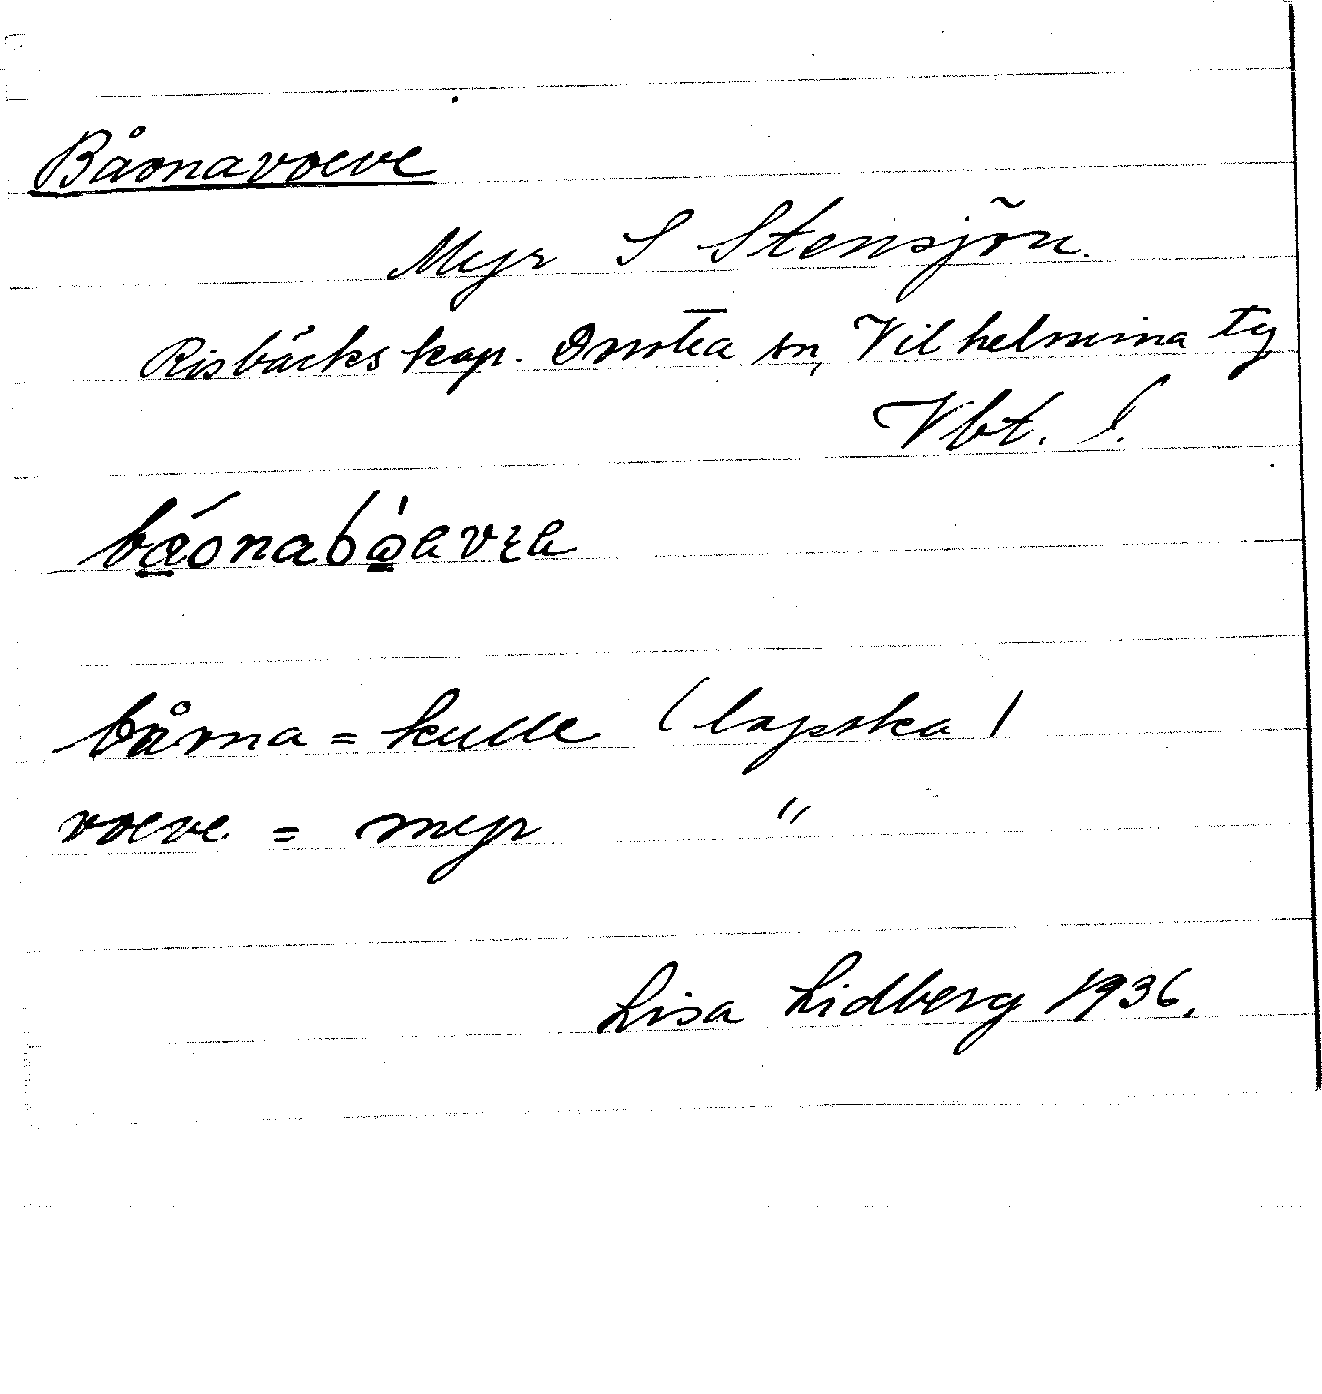 Båomavoeve
Myr S Stensjön.
Risbäcks kap. Dorotea sn, Vilhelmina tg
Vbt. l.
båoma = kulle (lapska)
voeve = myr "
Lisa Lidberg 1936.